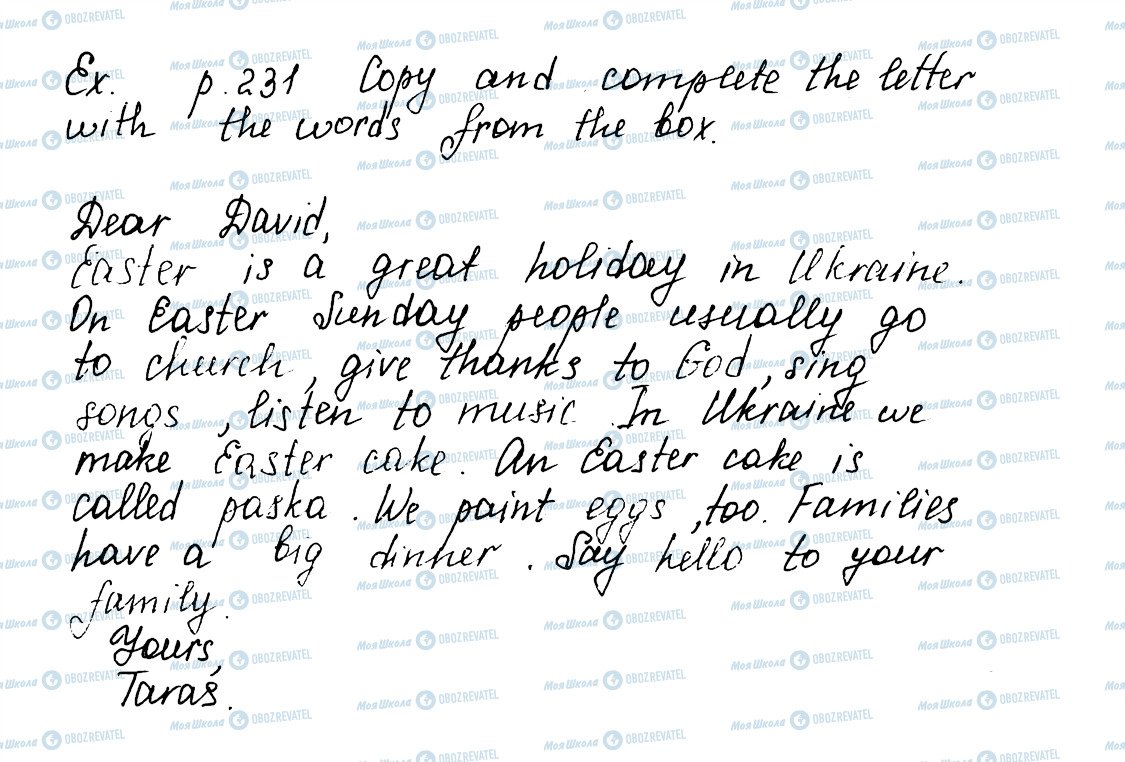 Ex. p.231 Copy and complete the letter
with the words from the box.
Dear David,
Easter is a great holiday in Ukraine.
On Easter Sunday people usually go
to church, give thanks to God, sing
songs, listen to music. In Ukraine we
make Easter cake. An Easter cake is
called paska. We paint eggs, too. Families
have a big dinner. Say hello to your
family.
Yours,
Taras.
Моя Школа OBOZREVATEL